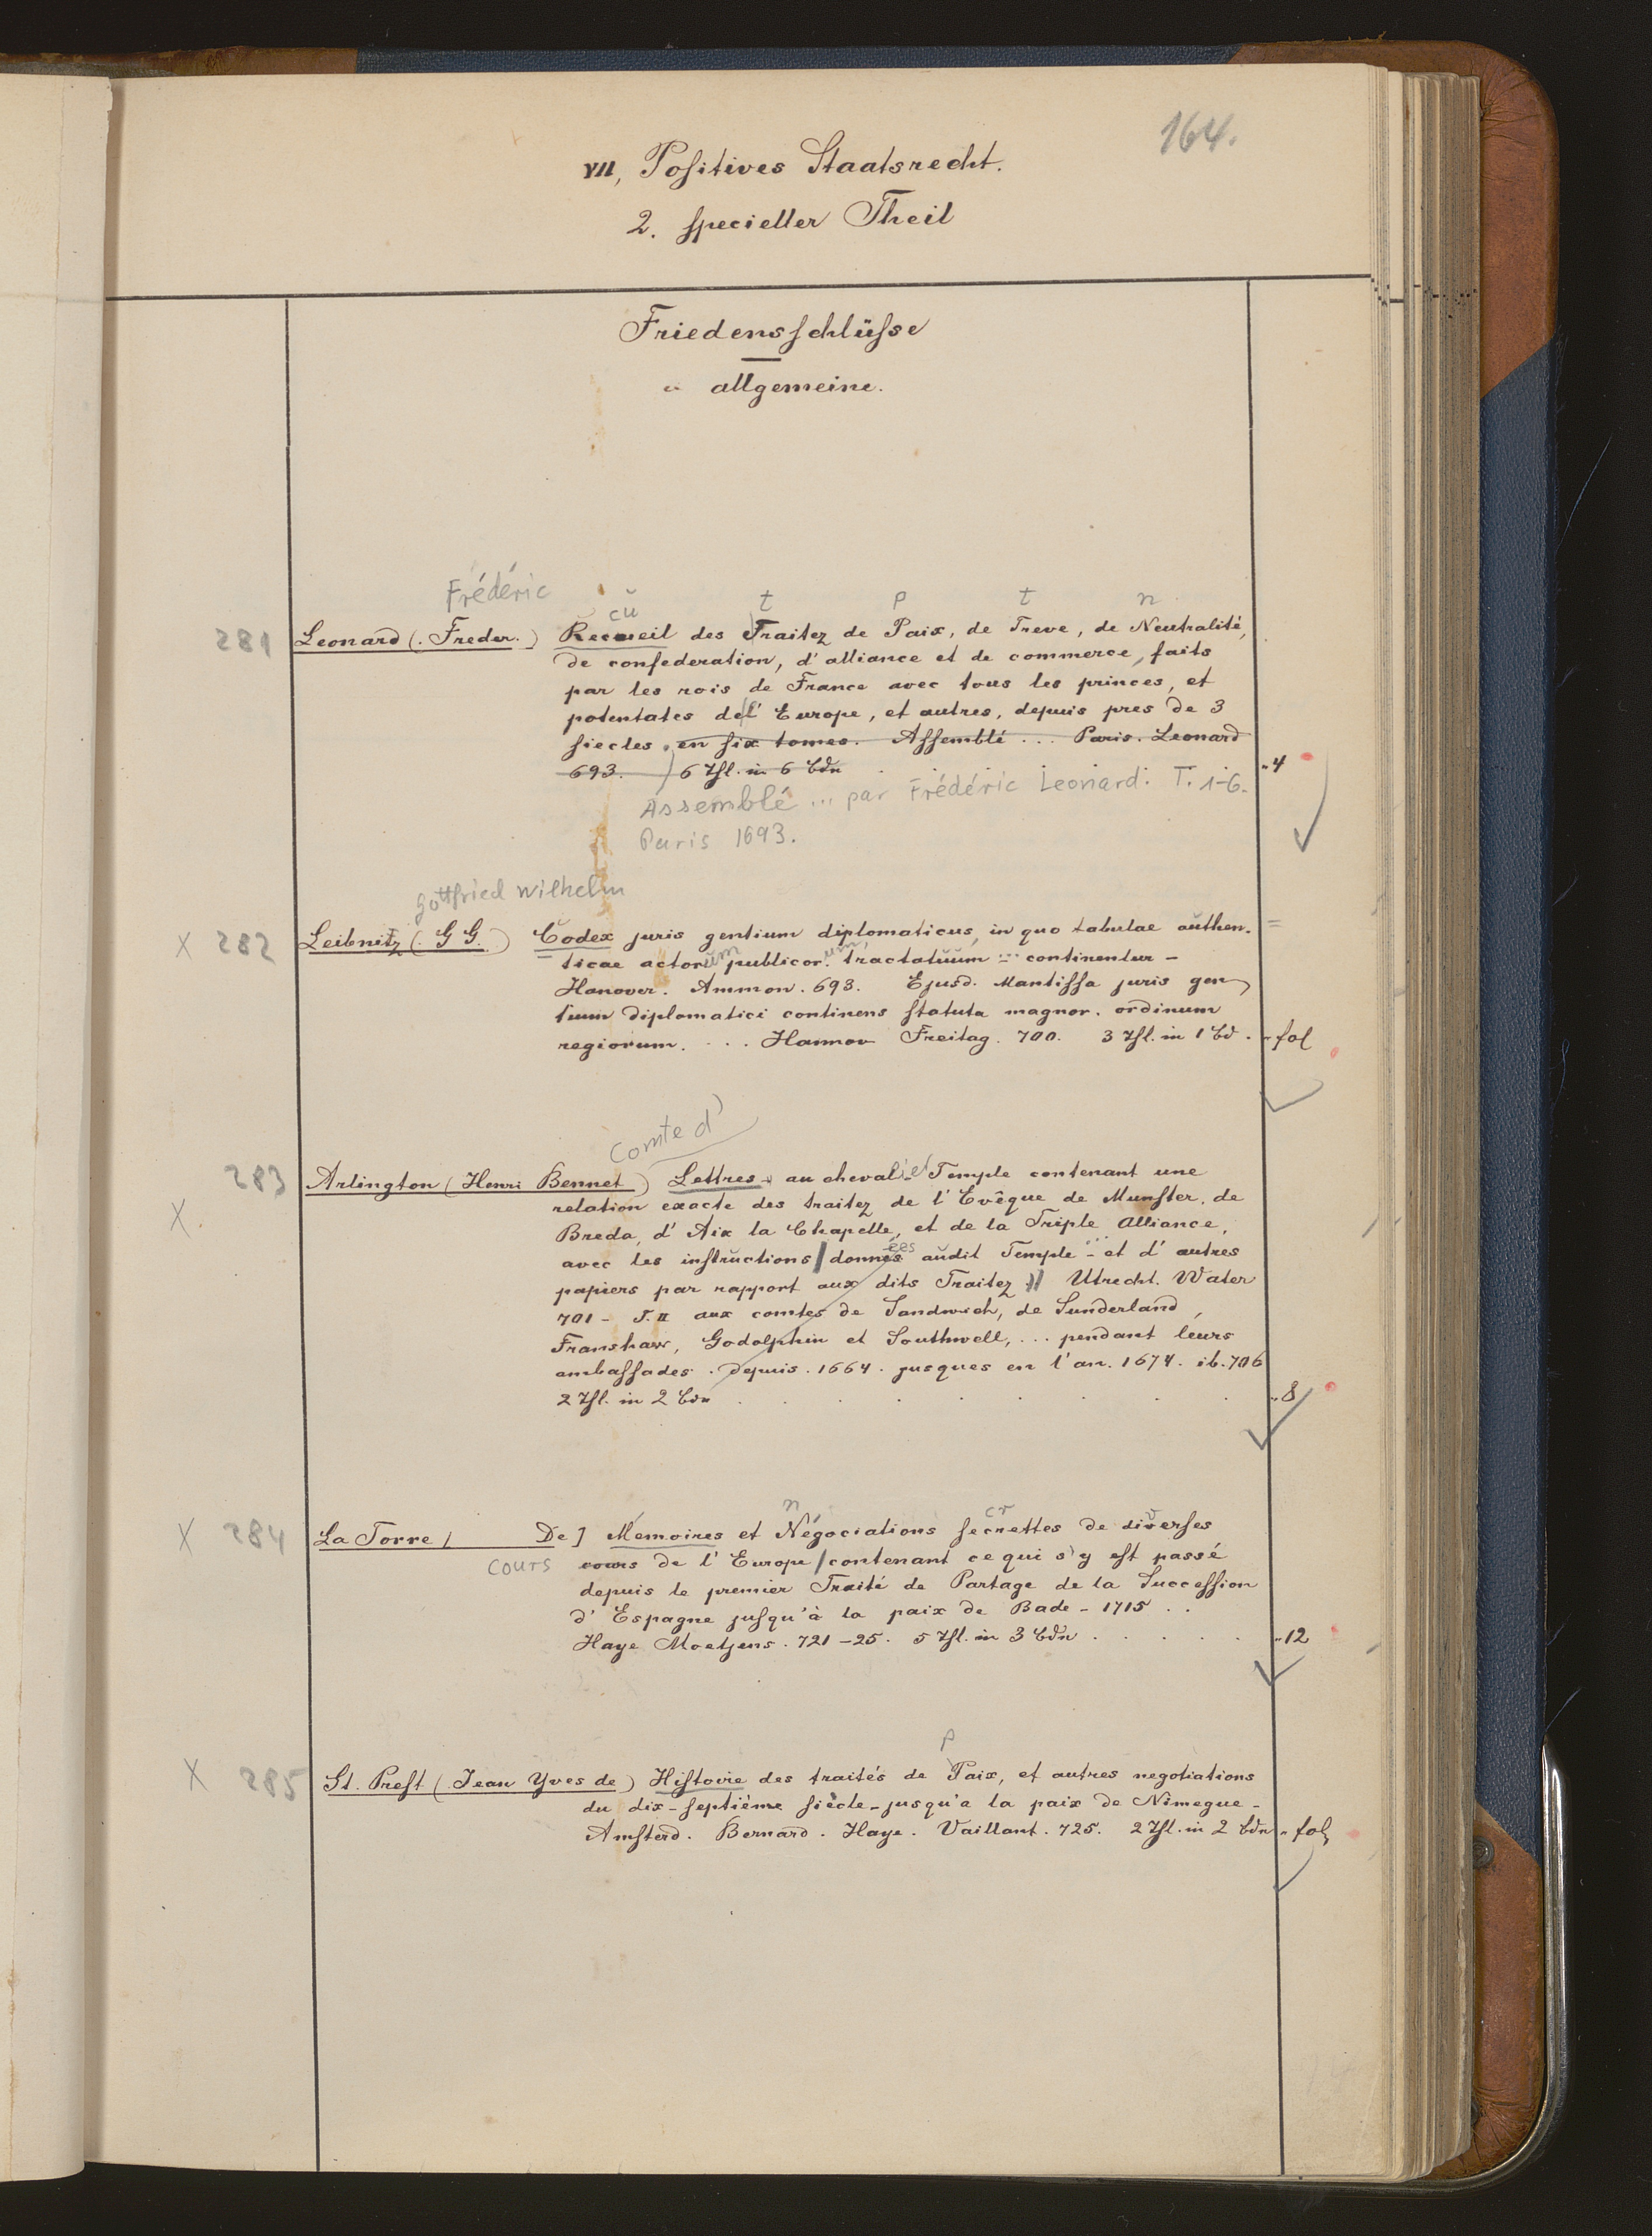 164.
VII, Positives Staatsrecht.
2. specieller Theil
Friedensschlüsse
allgemeine.
Frédéric
cŭ t p t n
281 Leonard (. Freder.) Recueil des Traitez de Paix, de Treve, de Neutralité,
de confederation, d'alliance et de commerce, faits
par les rois de France avec tous les princes, et
potentates de l'Europe, et autres, depuis pres de 3
siecles. en six tomes. Assemblé ... Paris. Leonard
693. 6 Thl. in 6 Bdn "4
Assemblé ... par Frédéric Leonard. T. 1-6.
Paris 1693.
Gottfried Wilhelm
X 282 Leibnitz (. G G.) Codex juris gentium diplomaticus, in quo tabulae authen.
ticae actorum publicorum tractatuum ... continentur -
Hanover. Ammon. 693. Ejusd. Mantissa juris gen
tium diplomatici continens statuta magnor. ordinum
regiorum. ... Hannov Freitag. 700. 3 Thl. in 1 Bd. " fol
Comte d'
283 Arlington (Henri Bennet) Lettres au chevalier Temple contenant une
X relation exacte des traitez de l'Evêque de Munster, de
Breda, d'Aix la Chapelle, et de la Triple Alliance,
ées
avec les instructions donnés audit Temple ... et d'autres
papiers par rapport aux dits Traitez Utrecht. Water
701 - T. II aux comtes de Sandwich, de Sunderland,
Franshaw, Godolphin et Southwell, ... pendant leurs
ambassades. depuis. 1664. jusques en l'an. 1674. ib. 706
2 Thl. in 2 Bdn "8
n cr
X 284 La Torre, De] Memoires et Négociations secrettes de diverses
cours cours de l'Europe contenant ce qui s'y est passé
depuis le premier Traité de Partage de la Succession
d'Espagne jusqu'à la paix de Bade - 1715 ..
Haye Moetjens. 721-25. 5 Thl. in 3 Bdn "12
p
X 285 St. Prest (. Jean Yves de) Histoire des traités de Paix, et autres negotiations
du dix-septième siècle - jusqu'a la paix de Nimegue -
Amsterd. Bernard. Haye. Vaillant. 725. 2 Thl. in 2 Bdn " fol